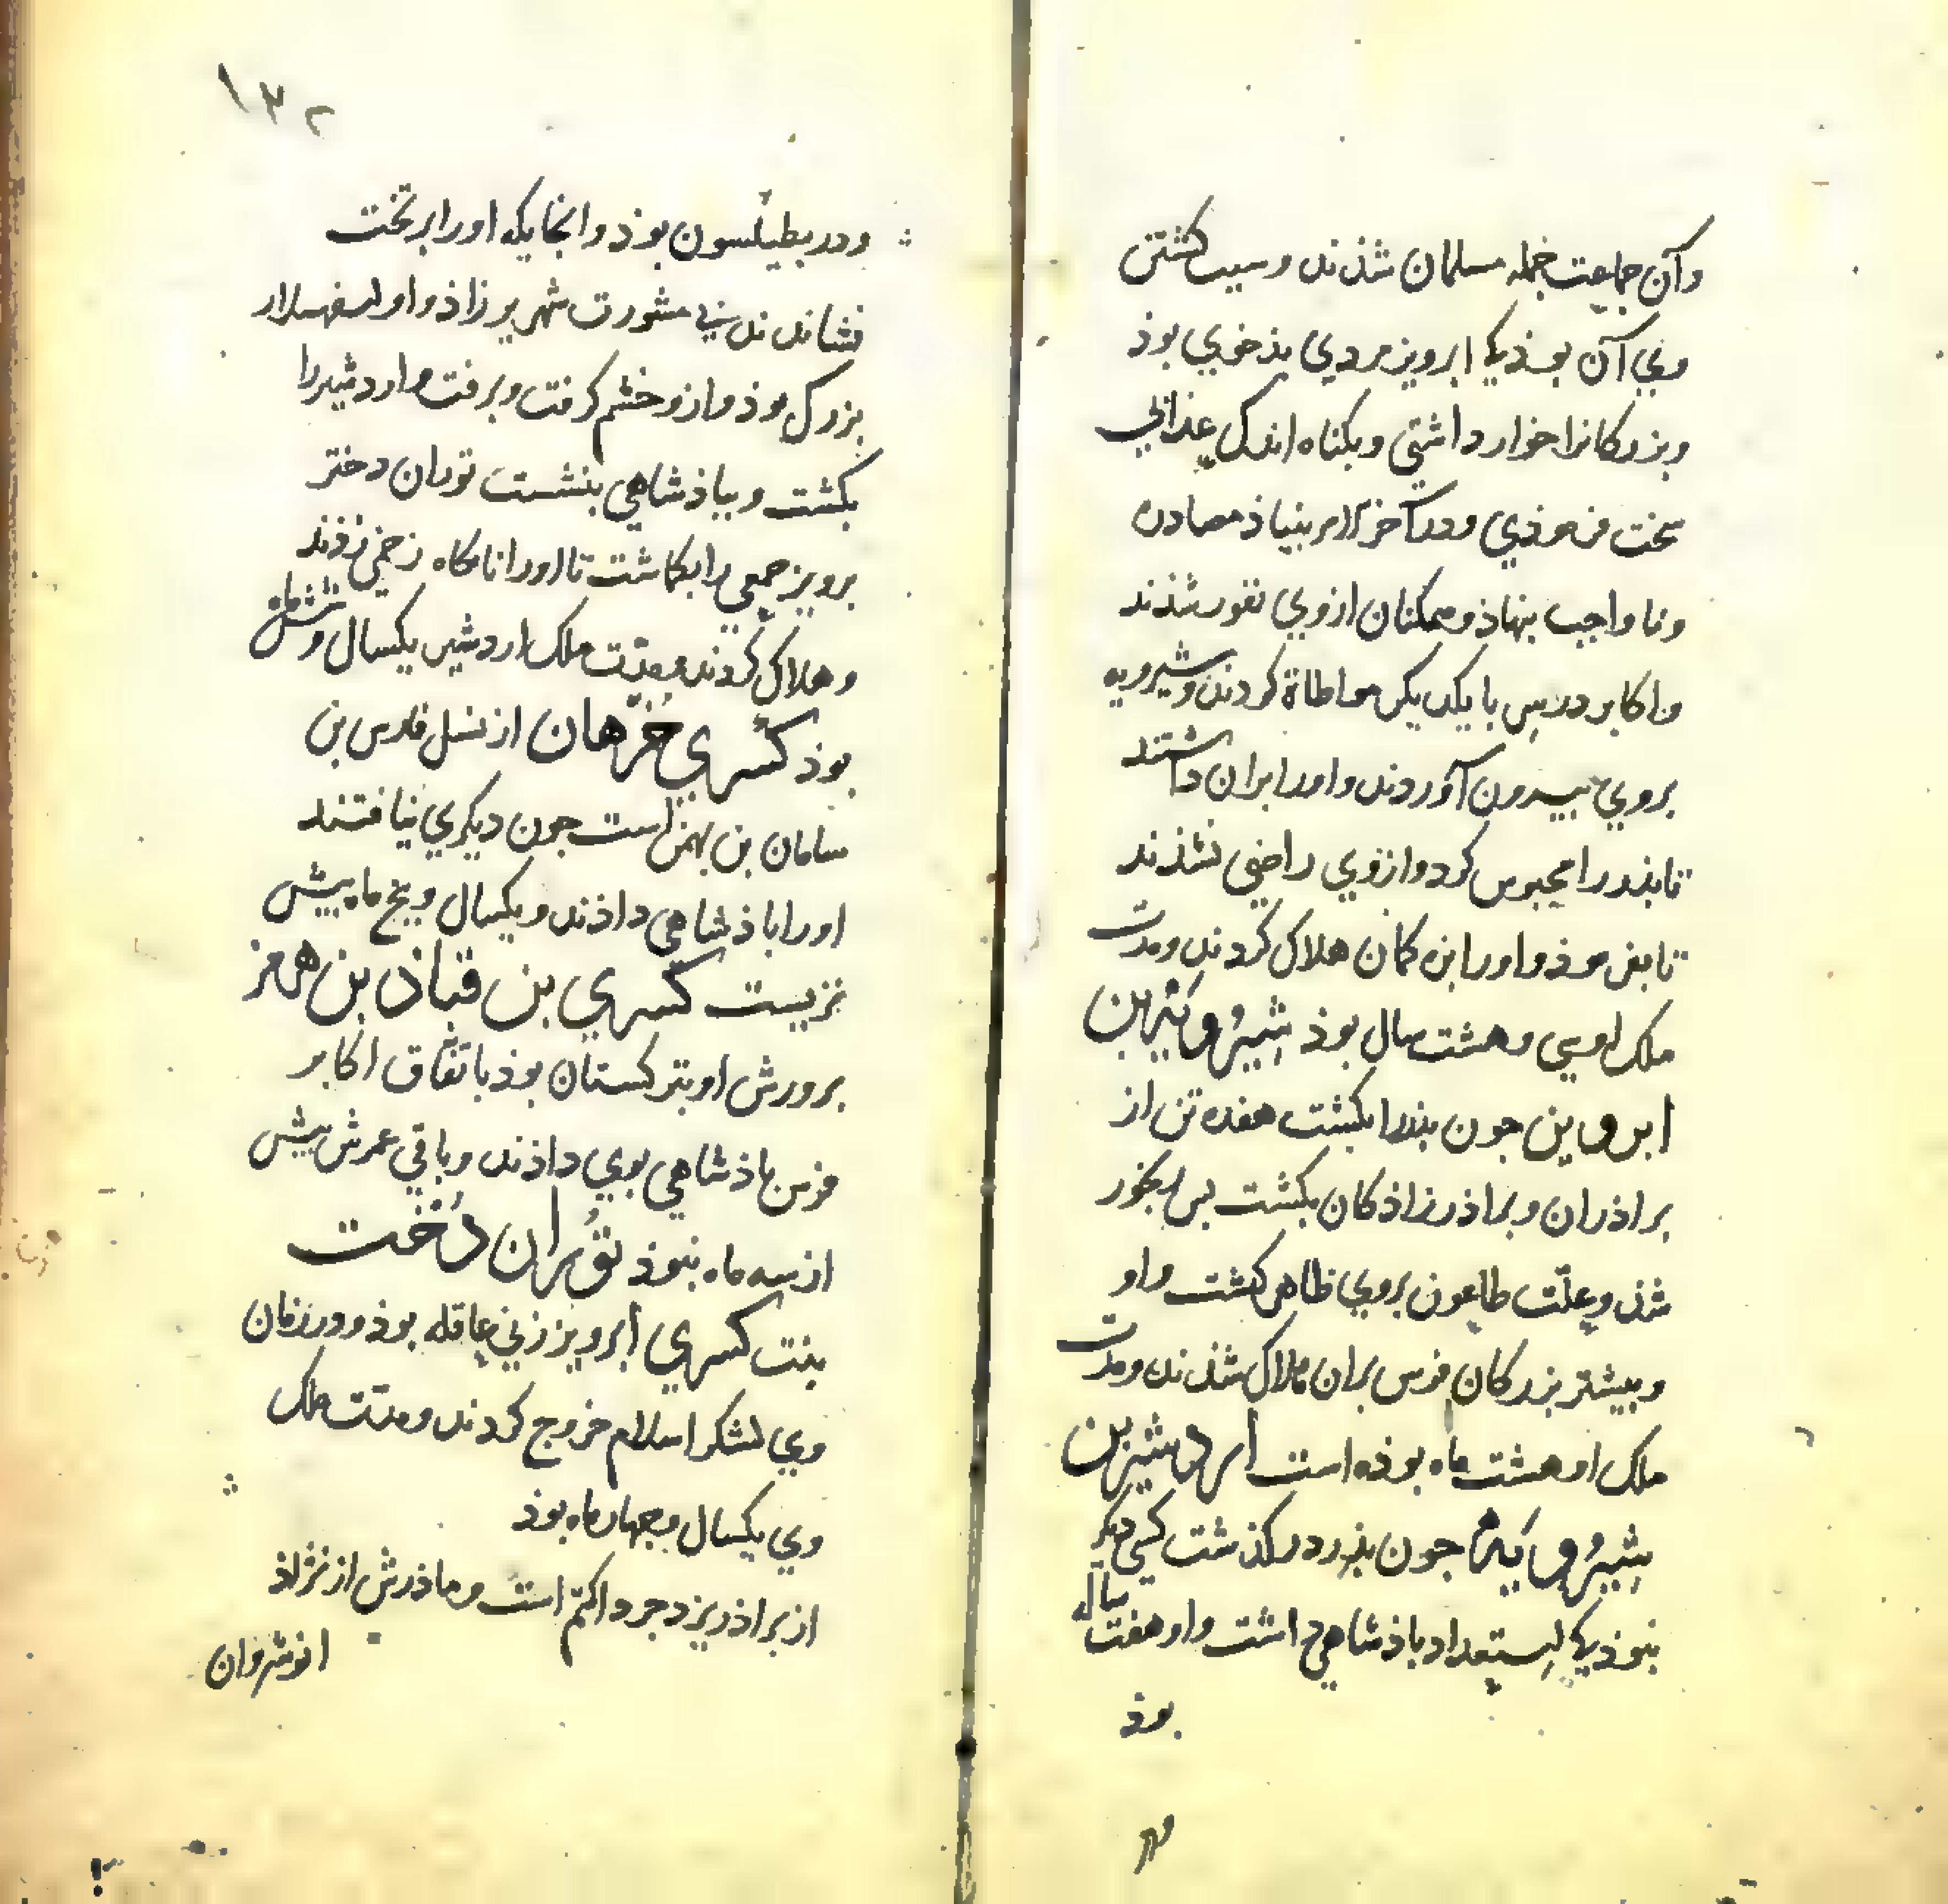 وآن جماعت جمله مسلمان شذند وسبب کشتن
وي آن بوذ که ابرویز مردي بذخوي بوذ
وبزرکانرا خوار داشتي وبکناه اندک عذابي
سخت فرموذي ودر آخر بنیاذ مصادره
ونا واجب بنهاذ وهمکنان ازوي نفور شذند
واکابر در سر با یکدیکر مواطاة کردند وشیرویه
بروي بیرون آوردند واورا بران داشتند
تا بذر را محبوس کرد وازوي راضي نشذند
تا بفرموذ واورا بزه کمان هلاک کردند ومدت
ملک او سي وهشت سال بوذ شیرویه بن
ابرویز جون بذررا بکشت هفده تن از
براذران وبراذر زاذکان بکشت بس رنجور
شذ وعلّت طاعون بروي ظاهر کشت واو
وبیشتر بزرکان فرس بران هلاک شذند ومدت
ملک او هشت ماه بوذه است اردشیر بن
شیرویه جون بذر درکذشت کسي دیکر
نبوذ که استعداد باذشاهي داشت واو هفت ساله
بوذ
١٣٢
ودر بطیسون بوذ وانجایکه اورا بر تخت
نشاندند بي مشورت شهر برزاذ واو اسفهسلار
بزرک بوذ وازو خشم کرفت وبرفت واردشیررا
بکشت وبباذشاهي بنشست توران دختر
برویز جمعي را بکماشت تا اورا ناکاه زخمي زذند
وهلاک کردند ومدّت ملک اردشیر یکسال وشش ماه
بوذ کسري خرهان از نسل فارس بن
ساسان بن بهمن است جون دیکري نیافتند
اورا باذشاهي داذند ویکسال وبنج ماه بیش
نزیست کسري بن قباذ بن هرمز
برورش او بترکستان بوذ باتفاق اکابر
فرس باذشاهي بوي داذند وباقي عمرش بیش
از سه ماه نبوذ توران دخت
بنت کسري ابرویز زني عاقله بوذ ودر زمان
وي لشکر اسلام خروج کردند ومدّت ملک
وي یکسال وجهار ماه بوذ
از براذر یزدجرد اکثم است وماذرش از نژاذ
انوشروان